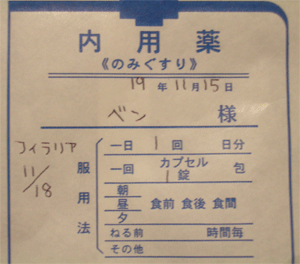 内用薬
《のみぐすり》
19年11月15日
ベン 様
フィラリア
11/18
服用法
一日 1 回 日分
一回 カプセル 1 錠 包
朝
昼 食前 食後 食間
夕
ねる前 時間毎
その他